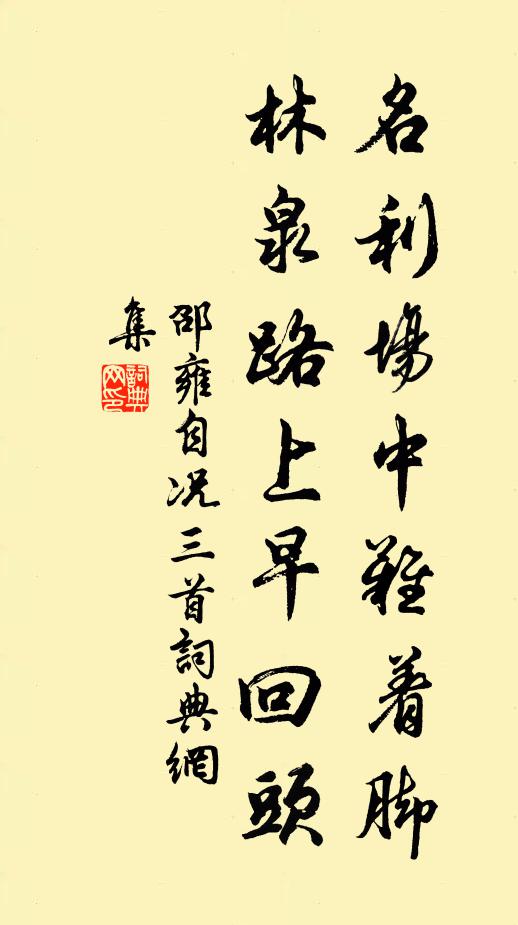 名利場中難着脚
林泉路上早回頭
邵雍自況三首詞典網
集
詞典网印